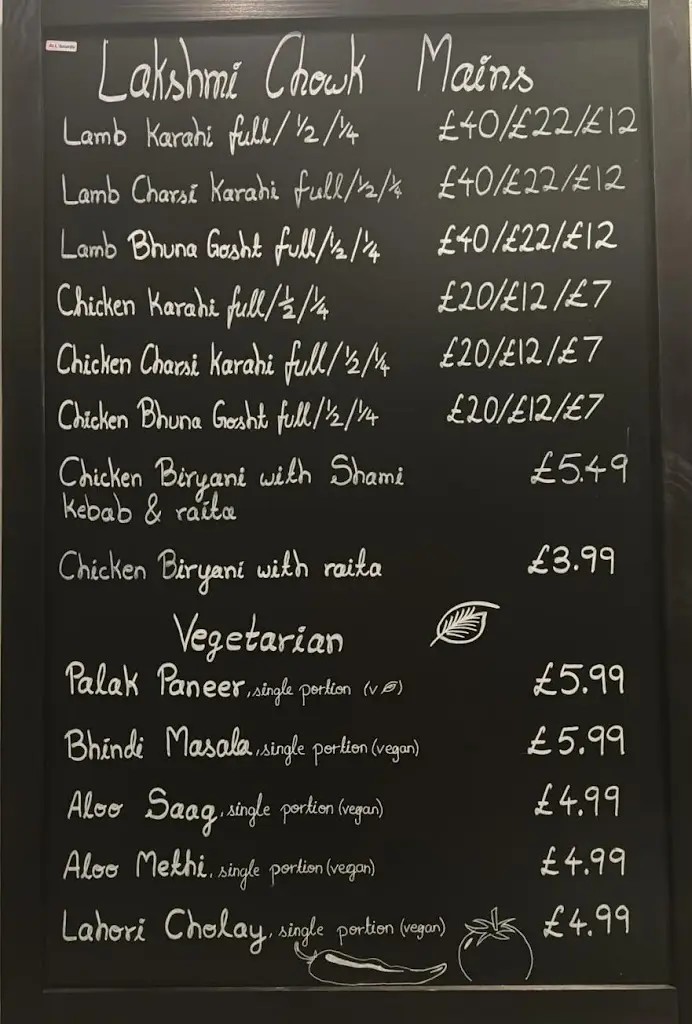 Lakshmi Chowk Mains
Lamb Karahi full/½/¼ £40/£22/£12
Lamb Charsi Karahi full/½/¼ £40/£22/£12
Lamb Bhuna Gosht full/½/¼ £40/£22/£12
Chicken Karahi full/½/¼ £20/£12/£7
Chicken Charsi Karahi full/½/¼ £20/£12/£7
Chicken Bhuna Gosht full/½/¼ £20/£12/£7
Chicken Biryani with Shami £5.49
Kebab & raita
Chicken Biryani with raita £3.99
Vegetarian
Palak Paneer, single portion (v) £5.99
Bhindi Masala, single portion (vegan) £5.99
Aloo Saag, single portion (vegan) £4.99
Aloo Methi, single portion (vegan) £4.99
Lahori Cholay, single portion (vegan) £4.99